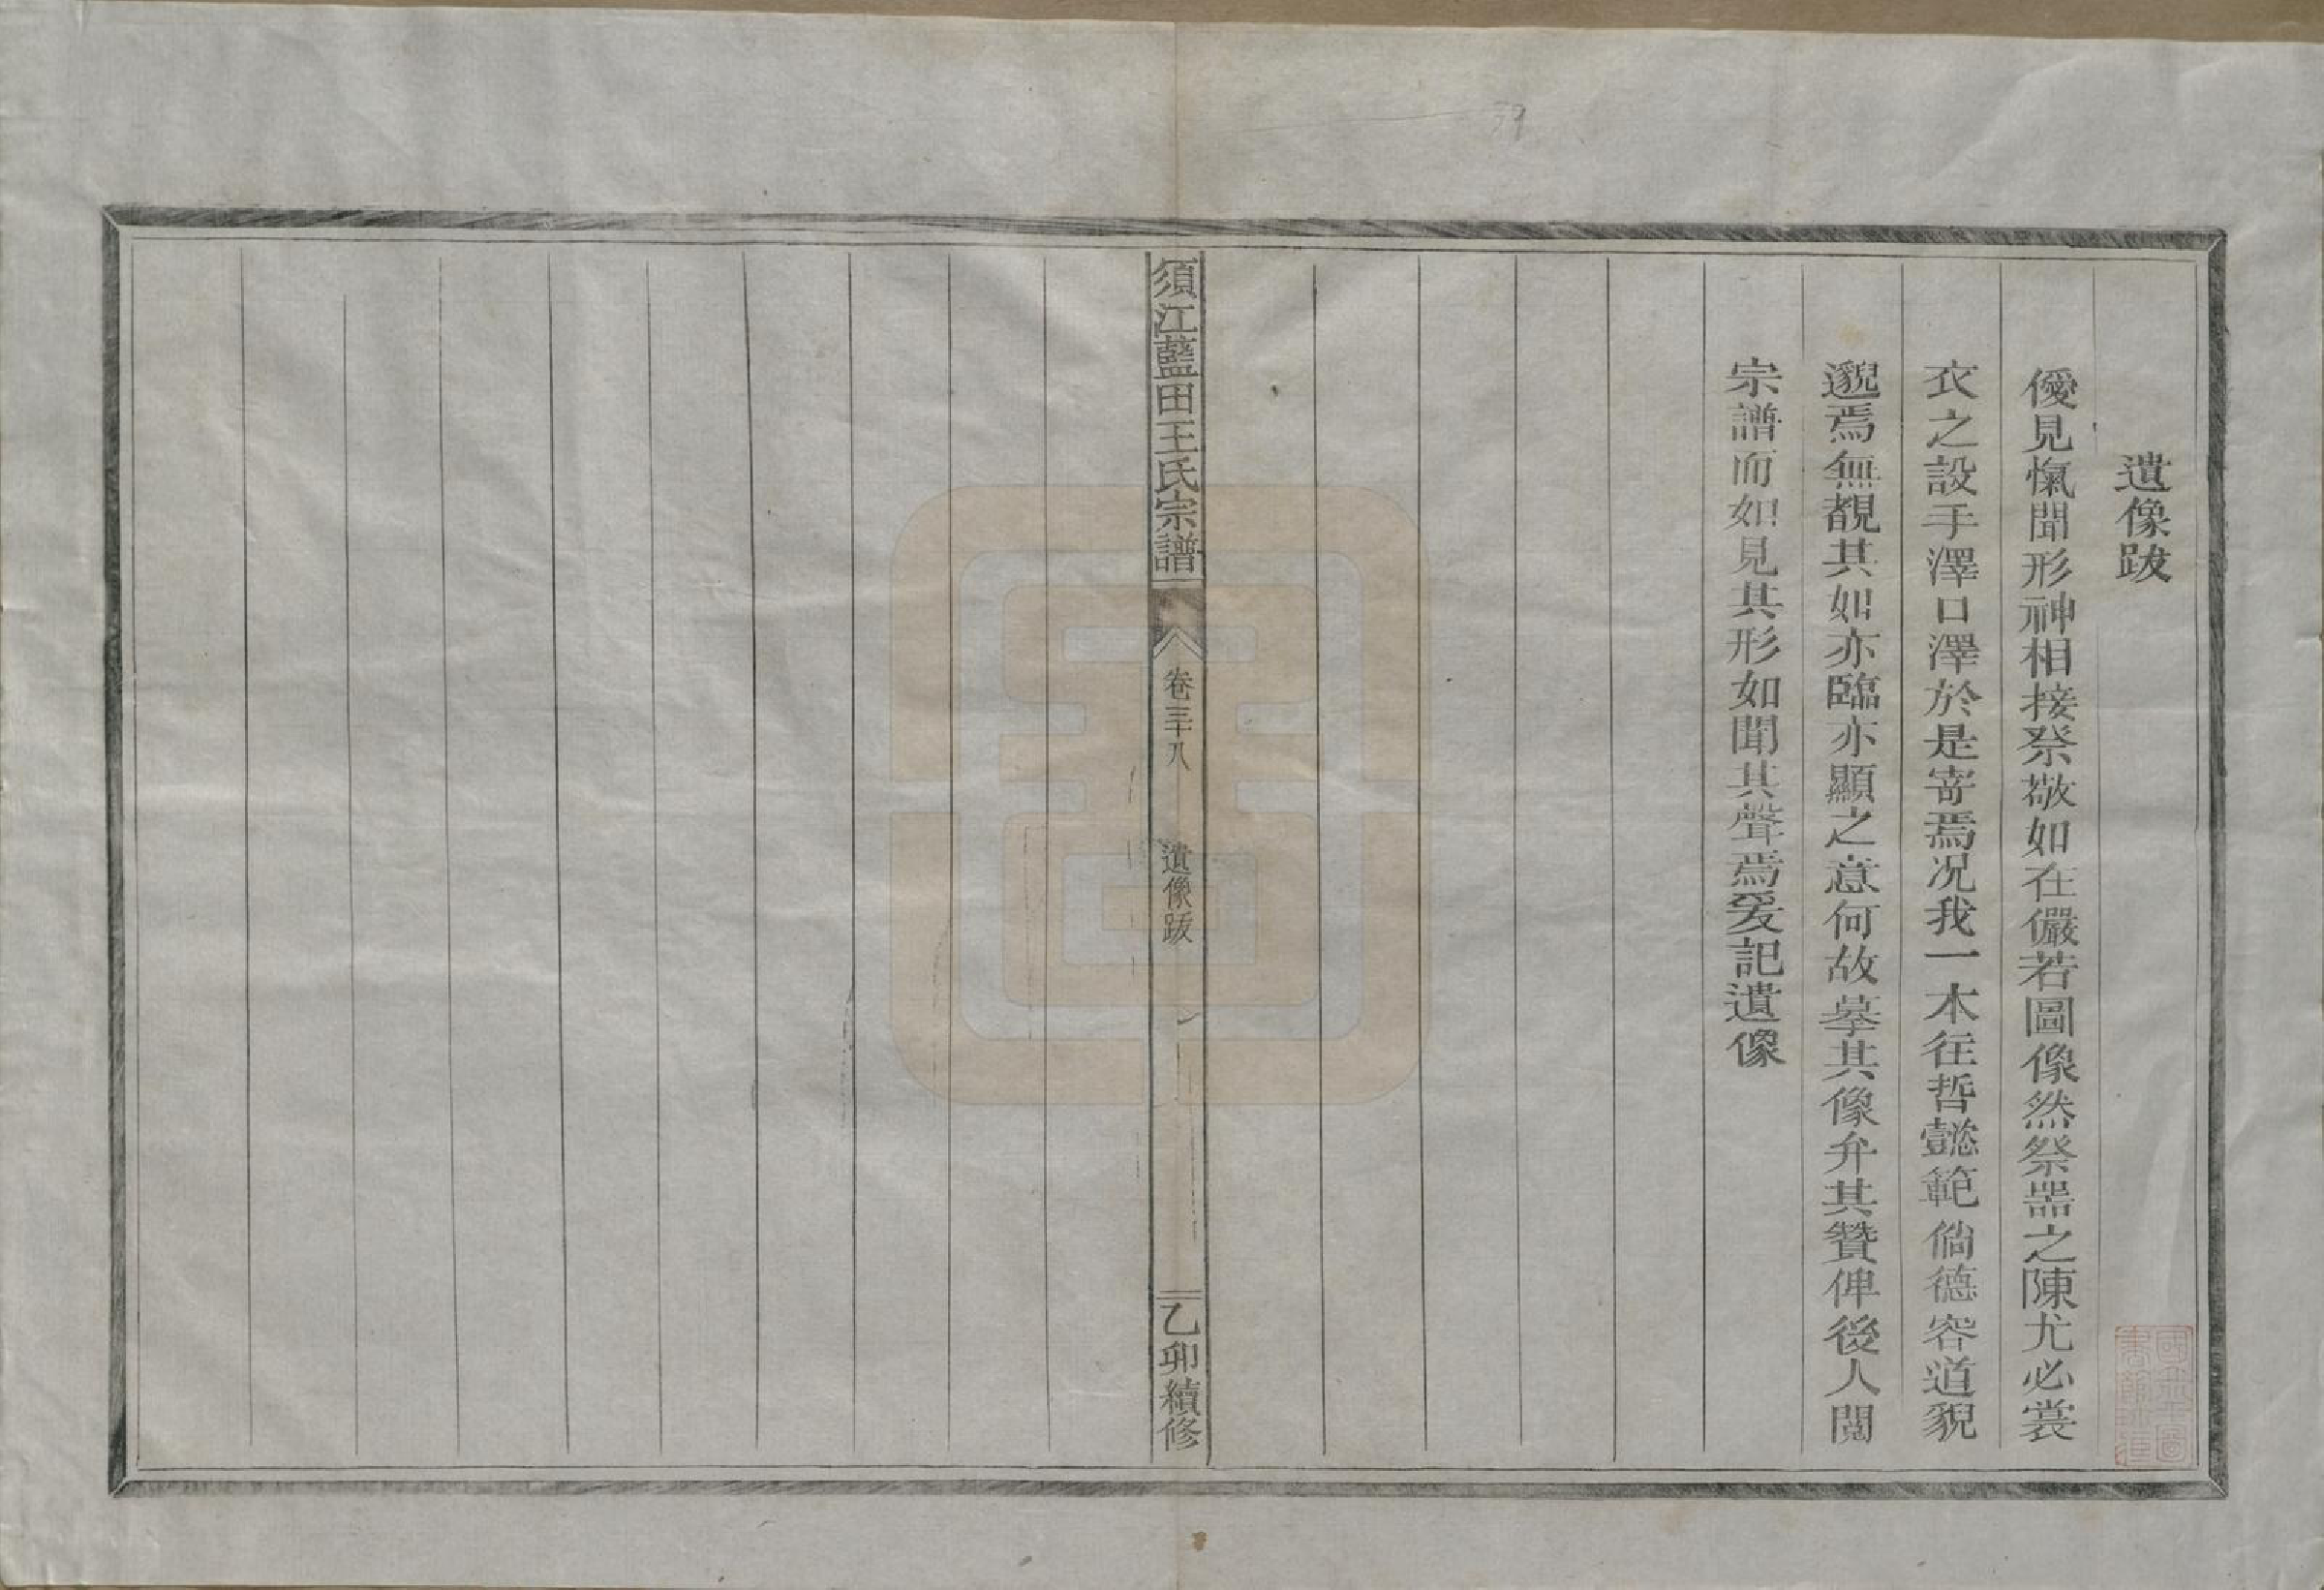 遺像跋
僾見愾聞形神相接祭敬如在儼若圖像然祭噐之陳尤必裳
衣之設手澤口澤於是寄焉况我一木往哲懿範倘德容道貌
邈焉無覩其如亦臨亦顯之意何故摹其像弁其贊俾後人閱
宗譜而如見其形如聞其聲焉爰記遺像
須江藍田王氏宗譜
卷三十八
遺像跋
一
乙卯續修